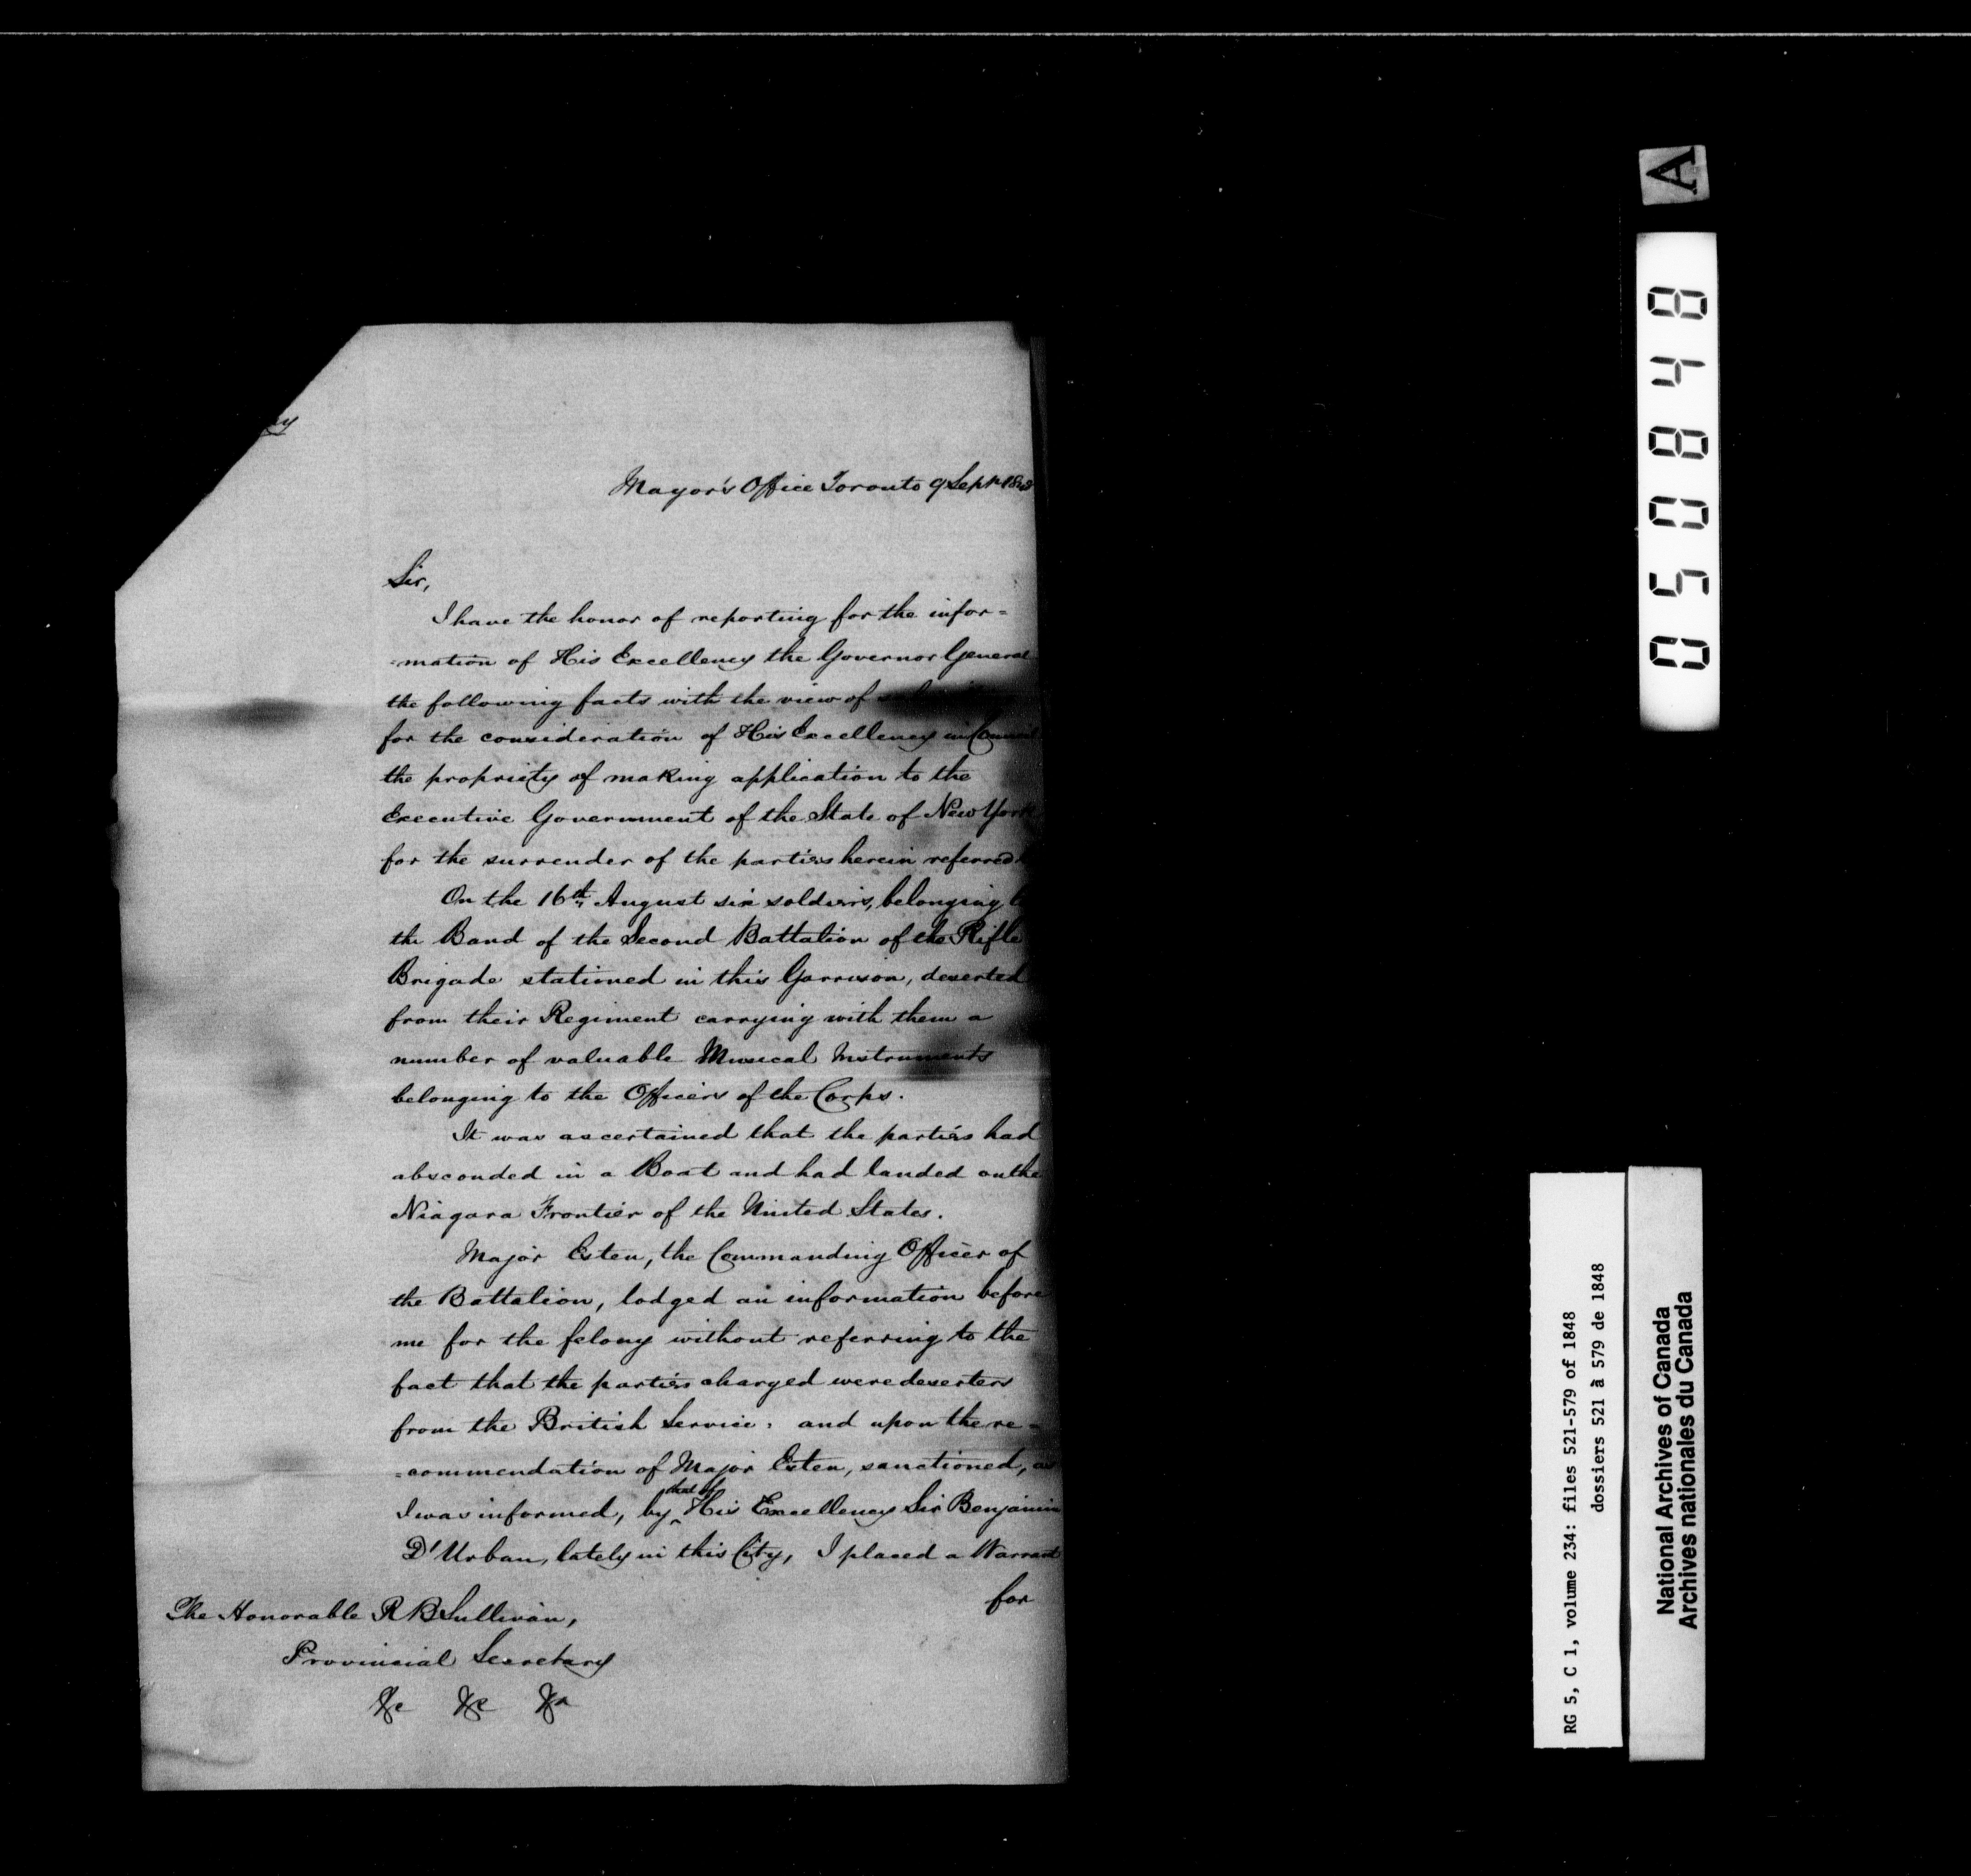 Mayor's Office Toronto 9 Sept 1848
Sir,
I have the honor of reporting for the infor=
=mation of His Excellency the Governor General
the following facts with the view of
for the consideration of His Excellency in Council
the propriety of making application to the
Executive Government of the State of New York
for the surrender of the parties herein referred
On the 16th August six soldiers, belonging to
the Band of the Second Battalion of the Rifle
Brigade stationed in this Garrison, deserted
from their Regiment carrying with them a
number of valuable Musical Instruments
belonging to the Officers of the Corps.
It was ascertained that the parties had
absconded in a Boat and had landed on the
Niagara Frontier of the United States.
Major Esten, the Commanding Officer of
the Battalion, lodged an information before
me for the felony without referring to the
fact that the parties charged were deserters
from the British Service: and upon the re=
=commendation of Major Esten, sanctioned, as
I was informed, by that of His Excellency Sir Benjamin
D'Urban, lately in this City, I placed a Warrant
for
The Honorable R B Sullivan,
Provincial Secretary
&c &c &c
A
050848
RG 5, C 1, volume 234: files 521-579 of 1848
dossiers 521 à 579 de 1848
National Archives of Canada
Archives nationales du Canada